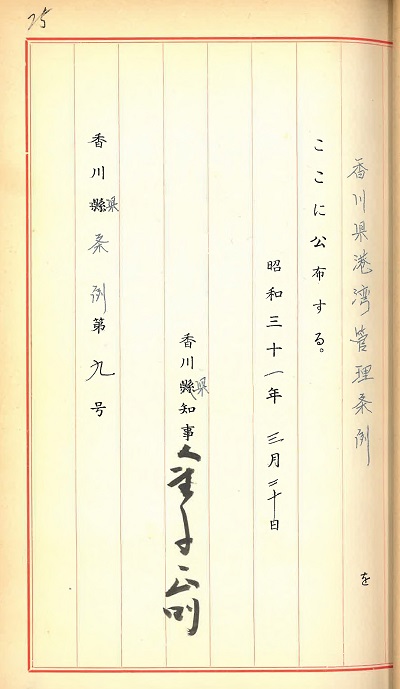 香川県港湾管理条例を
ここに公布する。
昭和三十一年三月二十日
香川縣県知事金子正則
香川縣県条例第九号